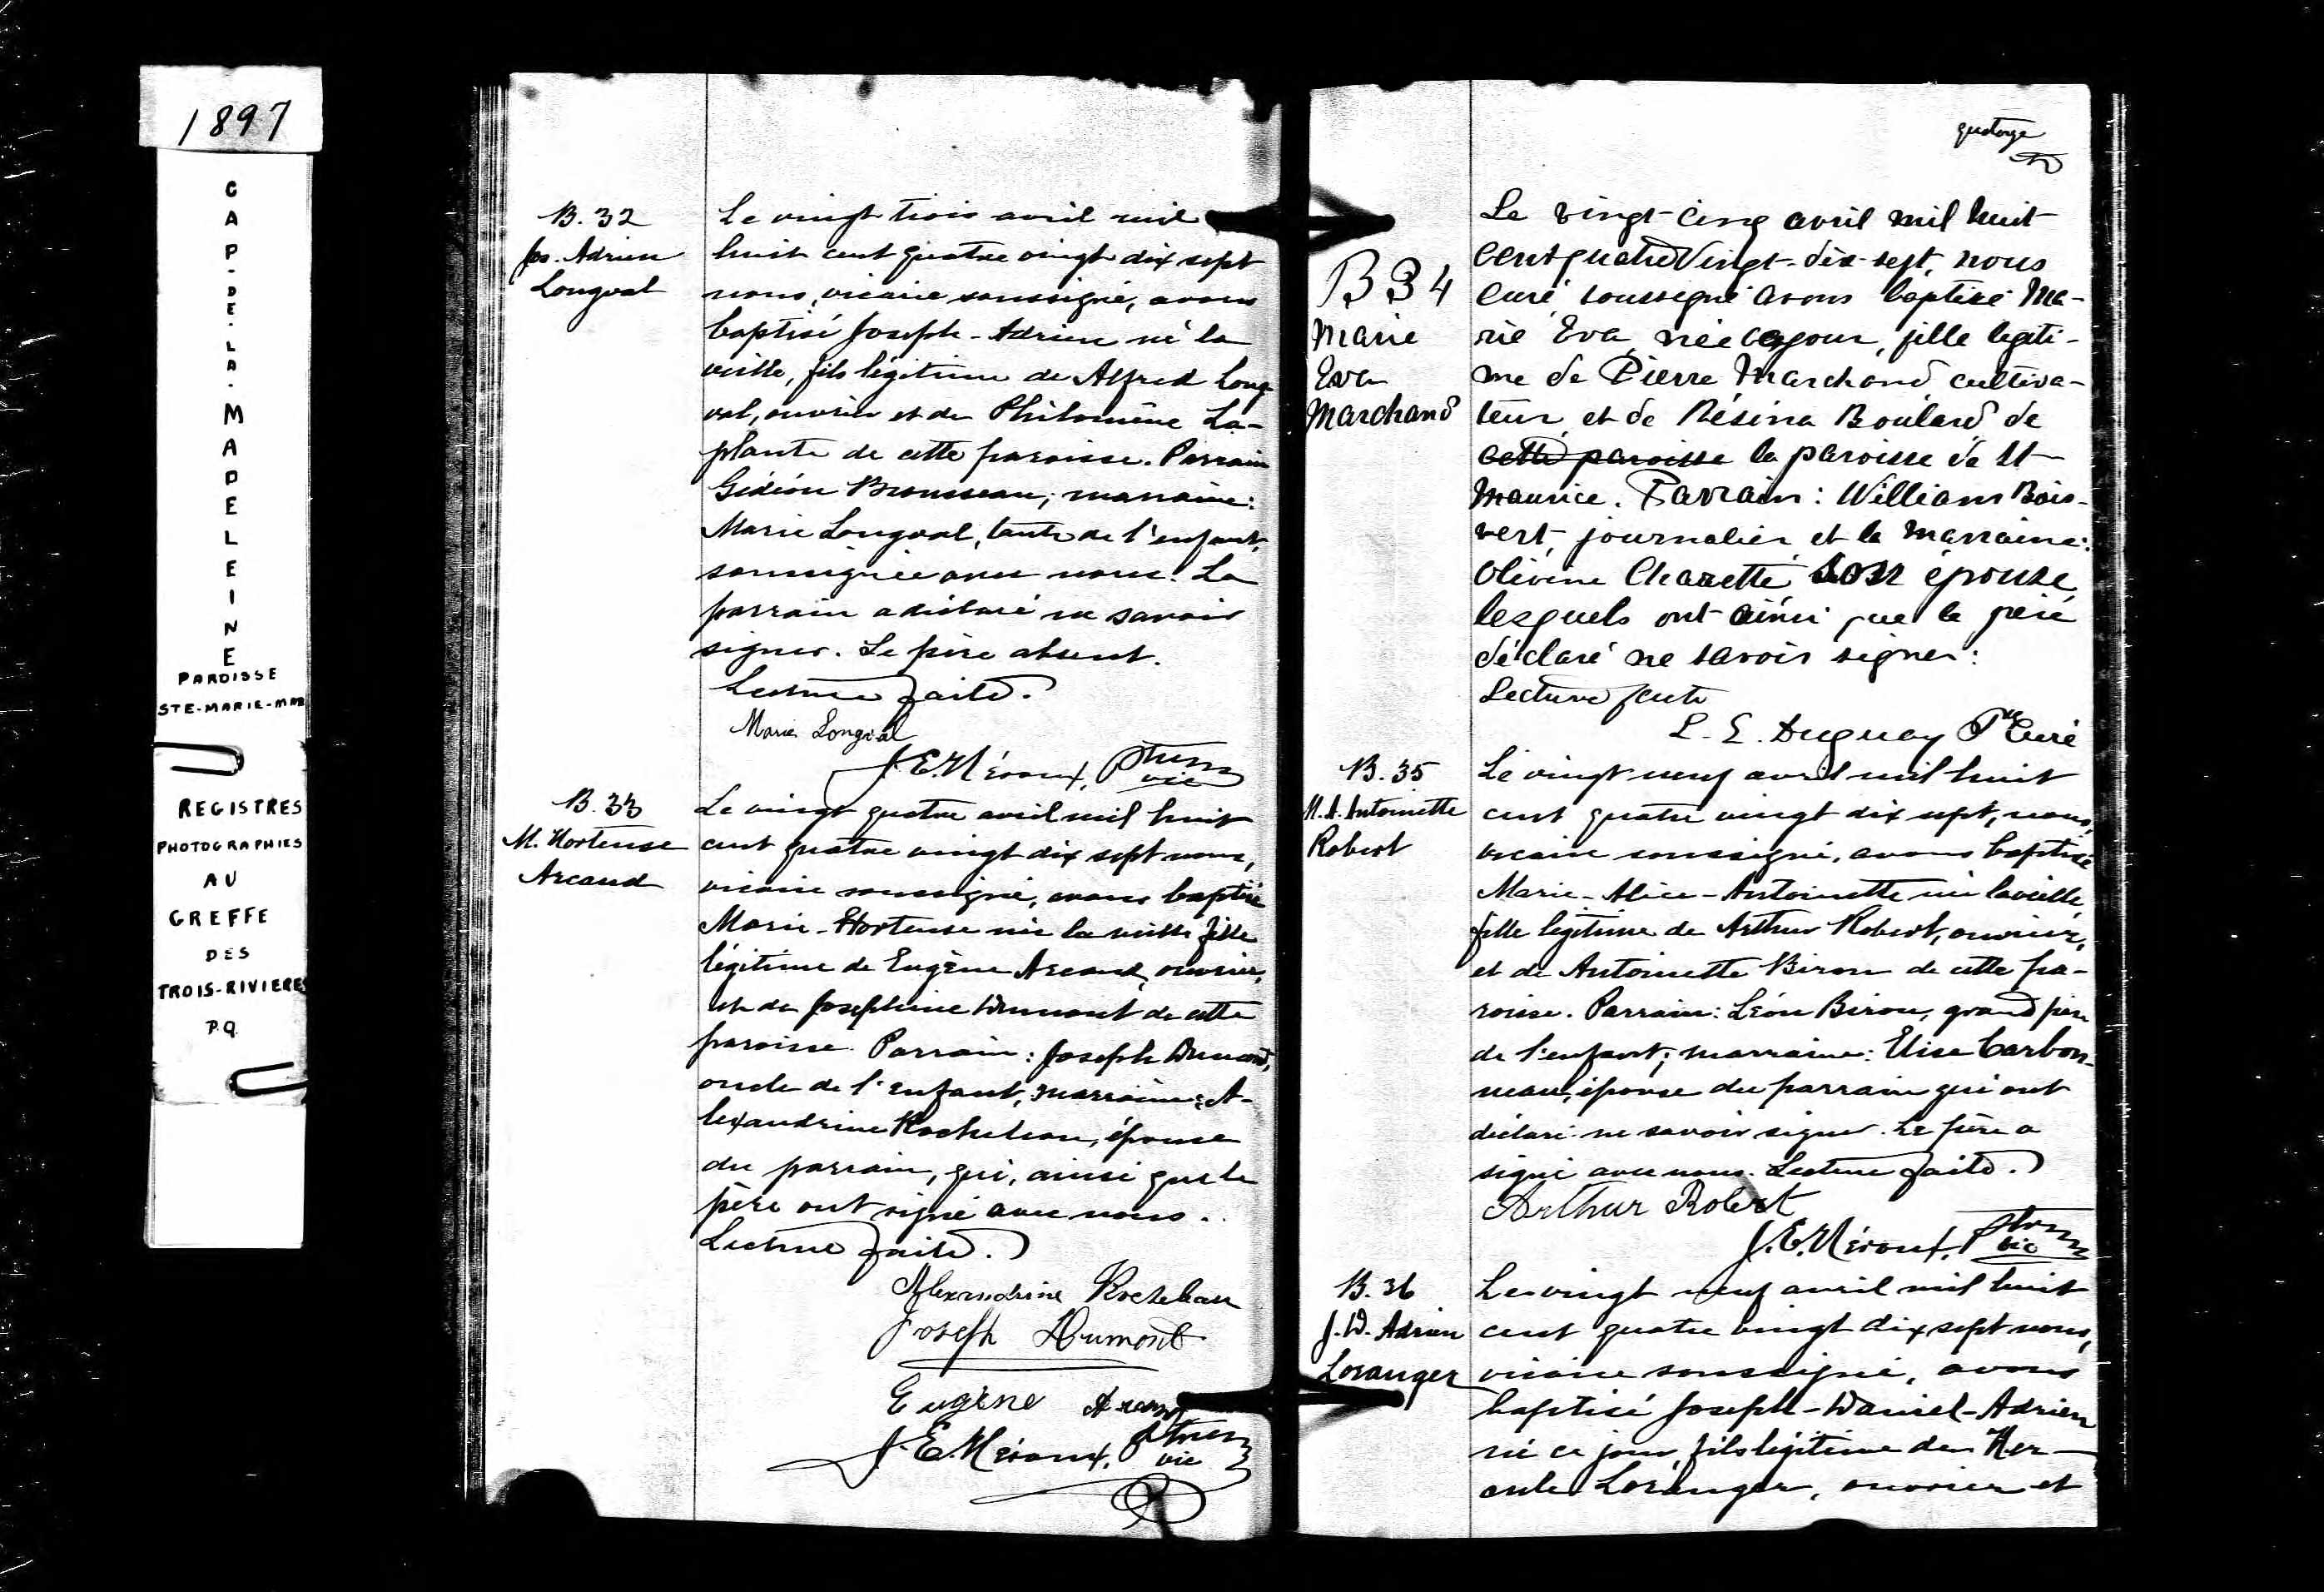 1897
CAP-DE-LA-MADELEINE
PAROISSE
STE-MARIE-MAD
REGISTRES
PHOTOGRAPHIES
AU
GREFFE
DES
TROIS-RIVIERES
P.Q.
B. 32
Jos. Adrien
Longval
Le vingt trois avril mil
huit cent quatre vingt dix sept
nous, vicaire soussigné, avons
baptisé Joseph-Adrien né la
veille, fils légitime de Alfred Long
val, ouvrier et de Philomène La-
plante de cette paroisse. Parrain
Gédéon Brousseau; marraine:
Marie Longval, tante de l'enfant,
soussignée avec nous. Le
parrain a déclaré ne savoir
signer. Le père absent.
Lecture faite.
Marie Longval
J. E. Héroux, Ptre
vic
B. 33
M. Hortense
Arcand
Le vingt quatre avril mil huit
cent quatre vingt dix sept nous,
vicaire soussigné, avons baptisé
Marie-Hortense née la veille fille
légitime de Eugène Arcand, ouvrier,
et de Joséphine Dumont de cette
paroisse. Parrain: Joseph Dumont,
oncle de l'enfant, marraine: A-
lexandrine Rocheleau, épouse
du parrain, qui, ainsi que le
père ont signé avec nous.
Lecture faite.
Alexandrine Rocheleau
Joseph Dumont
Eugène Arcand
J. E. Héroux, Ptre
vic
quatorze
B 34
Marie
Eva
Marchand
Le vingt-cinq avril mil huit
cent quatre vingt-dix-sept, nous
curé soussigné avons baptisé Ma-
rie Eva, née ce jour, fille légiti-
me de Pierre Marchand, cultiva-
teur, et de Résina Boulard de
cette paroisse la paroisse de St
Maurice. Parrain: William Bois-
vert, journalier et la marraine:
Olivine Charette son épouse,
lesquels ont ainsi que le père
déclaré ne savoir signer:
Lecture faite
L. E. Duguay Ptre Curé
B. 35
M. A. Antoinette
Robert
Le vingt neuf avril mil huit
cent quatre vingt dix sept, nous,
vicaire soussigné, avons baptisé
Marie-Alice-Antoinette née la veille,
fille légitime de Arthur Robert, ouvrier,
et de Antoinette Biron de cette pa-
roisse. Parrain: Léon Biron, grand père
de l'enfant; marraine: Elise Carbon-
neau, épouse du parrain qui ont
déclaré ne savoir signer. Le père a
signé avec nous. Lecture faite.
Arthur Robert
J. E. Héroux, Ptre
vic
B. 36
J. D. Adrien
Loranger
Le vingt neuf avril mil huit
cent quatre vingt dix sept nous,
vicaire soussigné, avons
baptisé Joseph-Daniel-Adrien
né ce jour, fils légitime de Her-
cule Loranger, ouvrier et